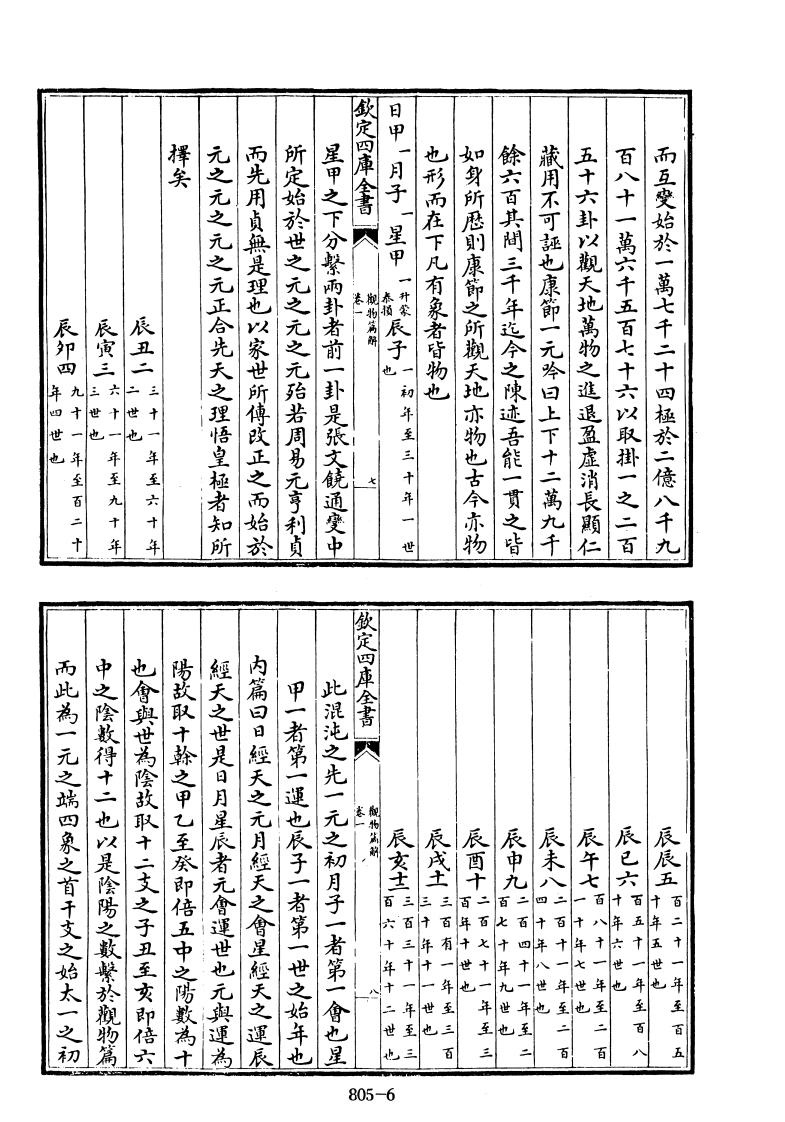 而互變始於一萬七千二十四極於二億八千九
百八十一萬六千五百七十六以取掛一之二百
五十六卦以觀天地萬物之進退盈虛消長顯仁
藏用不可誣也康節一元吟曰上下十二萬九千
餘六百其間三千年迄今之陳迹吾能一貫之皆
如身所歷則康節之所觀天地亦物也古今亦物
也形而在下凡有象者皆物也
日甲一月子一星甲一升蒙泰損辰子一初年至三十年一世也
欽定四庫全書
觀物篇解
卷一
七
星甲之下分繫兩卦者前一卦是張文饒通變中
所定始於世之元之元之元殆若周易元亨利貞
而先用貞無是理也以家世所傳改正之而始於
元之元之元之元正合先天之理悟皇極者知所
擇矣
辰丑二三十一年至六十年二世也
辰寅三六十一年至九十年三世也
辰卯四九十一年至百二十年四世也
辰辰五百二十一年至百五十年五世也
辰巳六百五十一年至百八十年六世也
辰午七百八十一年至二百一十年七世也
辰未八二百十一年至二百四十年八世也
辰申九二百四十一年至二百七十年九世也
辰酉十二百七十一年至三百年十世也
辰戌十一三百有一年至三百三十年十一世也
辰亥十二三百三十一年至三百六十年十二世也
欽定四庫全書
觀物篇解
卷一
八
此混沌之先一元之初月子一者第一會也星
甲一者第一運也辰子一者第一世之始年也
内篇曰日經天之元月經天之會星經天之運辰
經天之世是日月星辰者元會運世也元與運為
陽故取十幹之甲乙至癸即倍五中之陽數為十
也會與世為陰故取十二支之子丑至亥即倍六
中之陰數得十二也以是陰陽之數繫於觀物篇
而此為一元之端四象之首干支之始太一之初
805-6